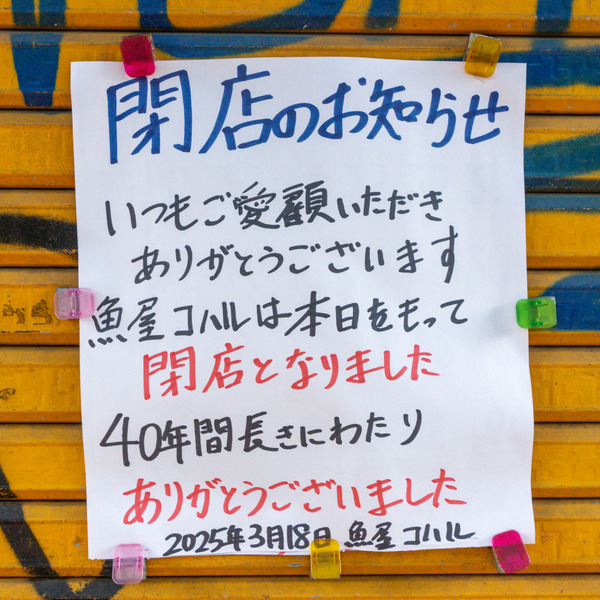 閉店のお知らせ
いつもご愛顧いただき
ありがとうございます
魚屋コハルは本日をもって
閉店となりました
40年間長きにわたり
ありがとうございました
2025年3月18日 魚屋 コハル